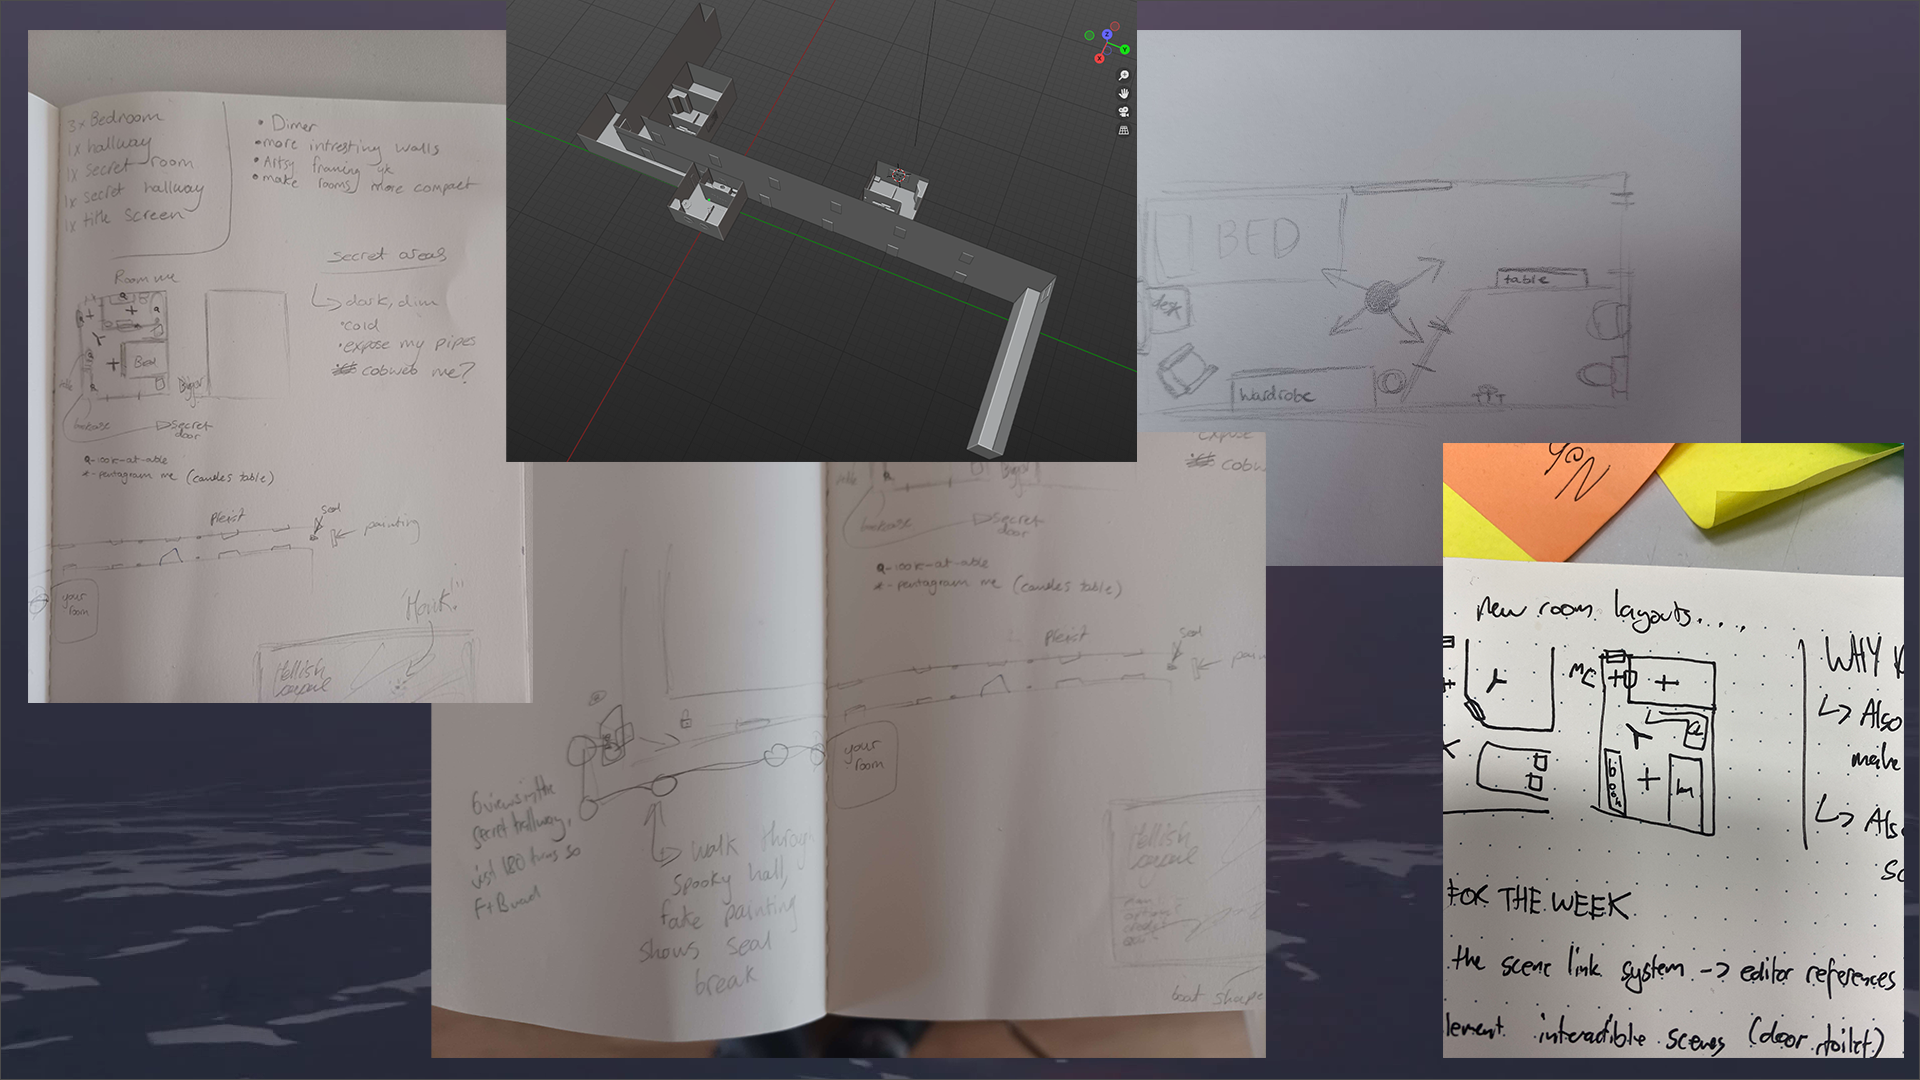 3x Bedroom
1x hallway
1x secret room
1x secret hallway
1x title screen
• Dimer
• more intresting walls
• Artsy framing yk
• make rooms more compact
secret areas
↳ dark, dim
• cold
• expose my pipes
cobweb me?
Room me
Bed
Bigger
bookcase
Secret
door
a - look-at-able
* - pentagram me (candles table)
seal
painting
your
room
"Honk!"
Hellish
BED
desk
table
Wardrobe
expose
cobw
bookcase
Secret
door
a - look-at-able
* - pentagram me (candles table)
seal
your
room
6 views in the
secret hallway,
just 180 turns so
F + B and
walk through
Spooky hall,
fake painting
shows seal
break
Hellish
options
credits
boat shape
No
new room layouts....,
MC
book
WHY
↳ Also
make
↳ Als
so
FOR THE WEEK
the scene link system -> editor references
lement interactible scenes (door, toilet)